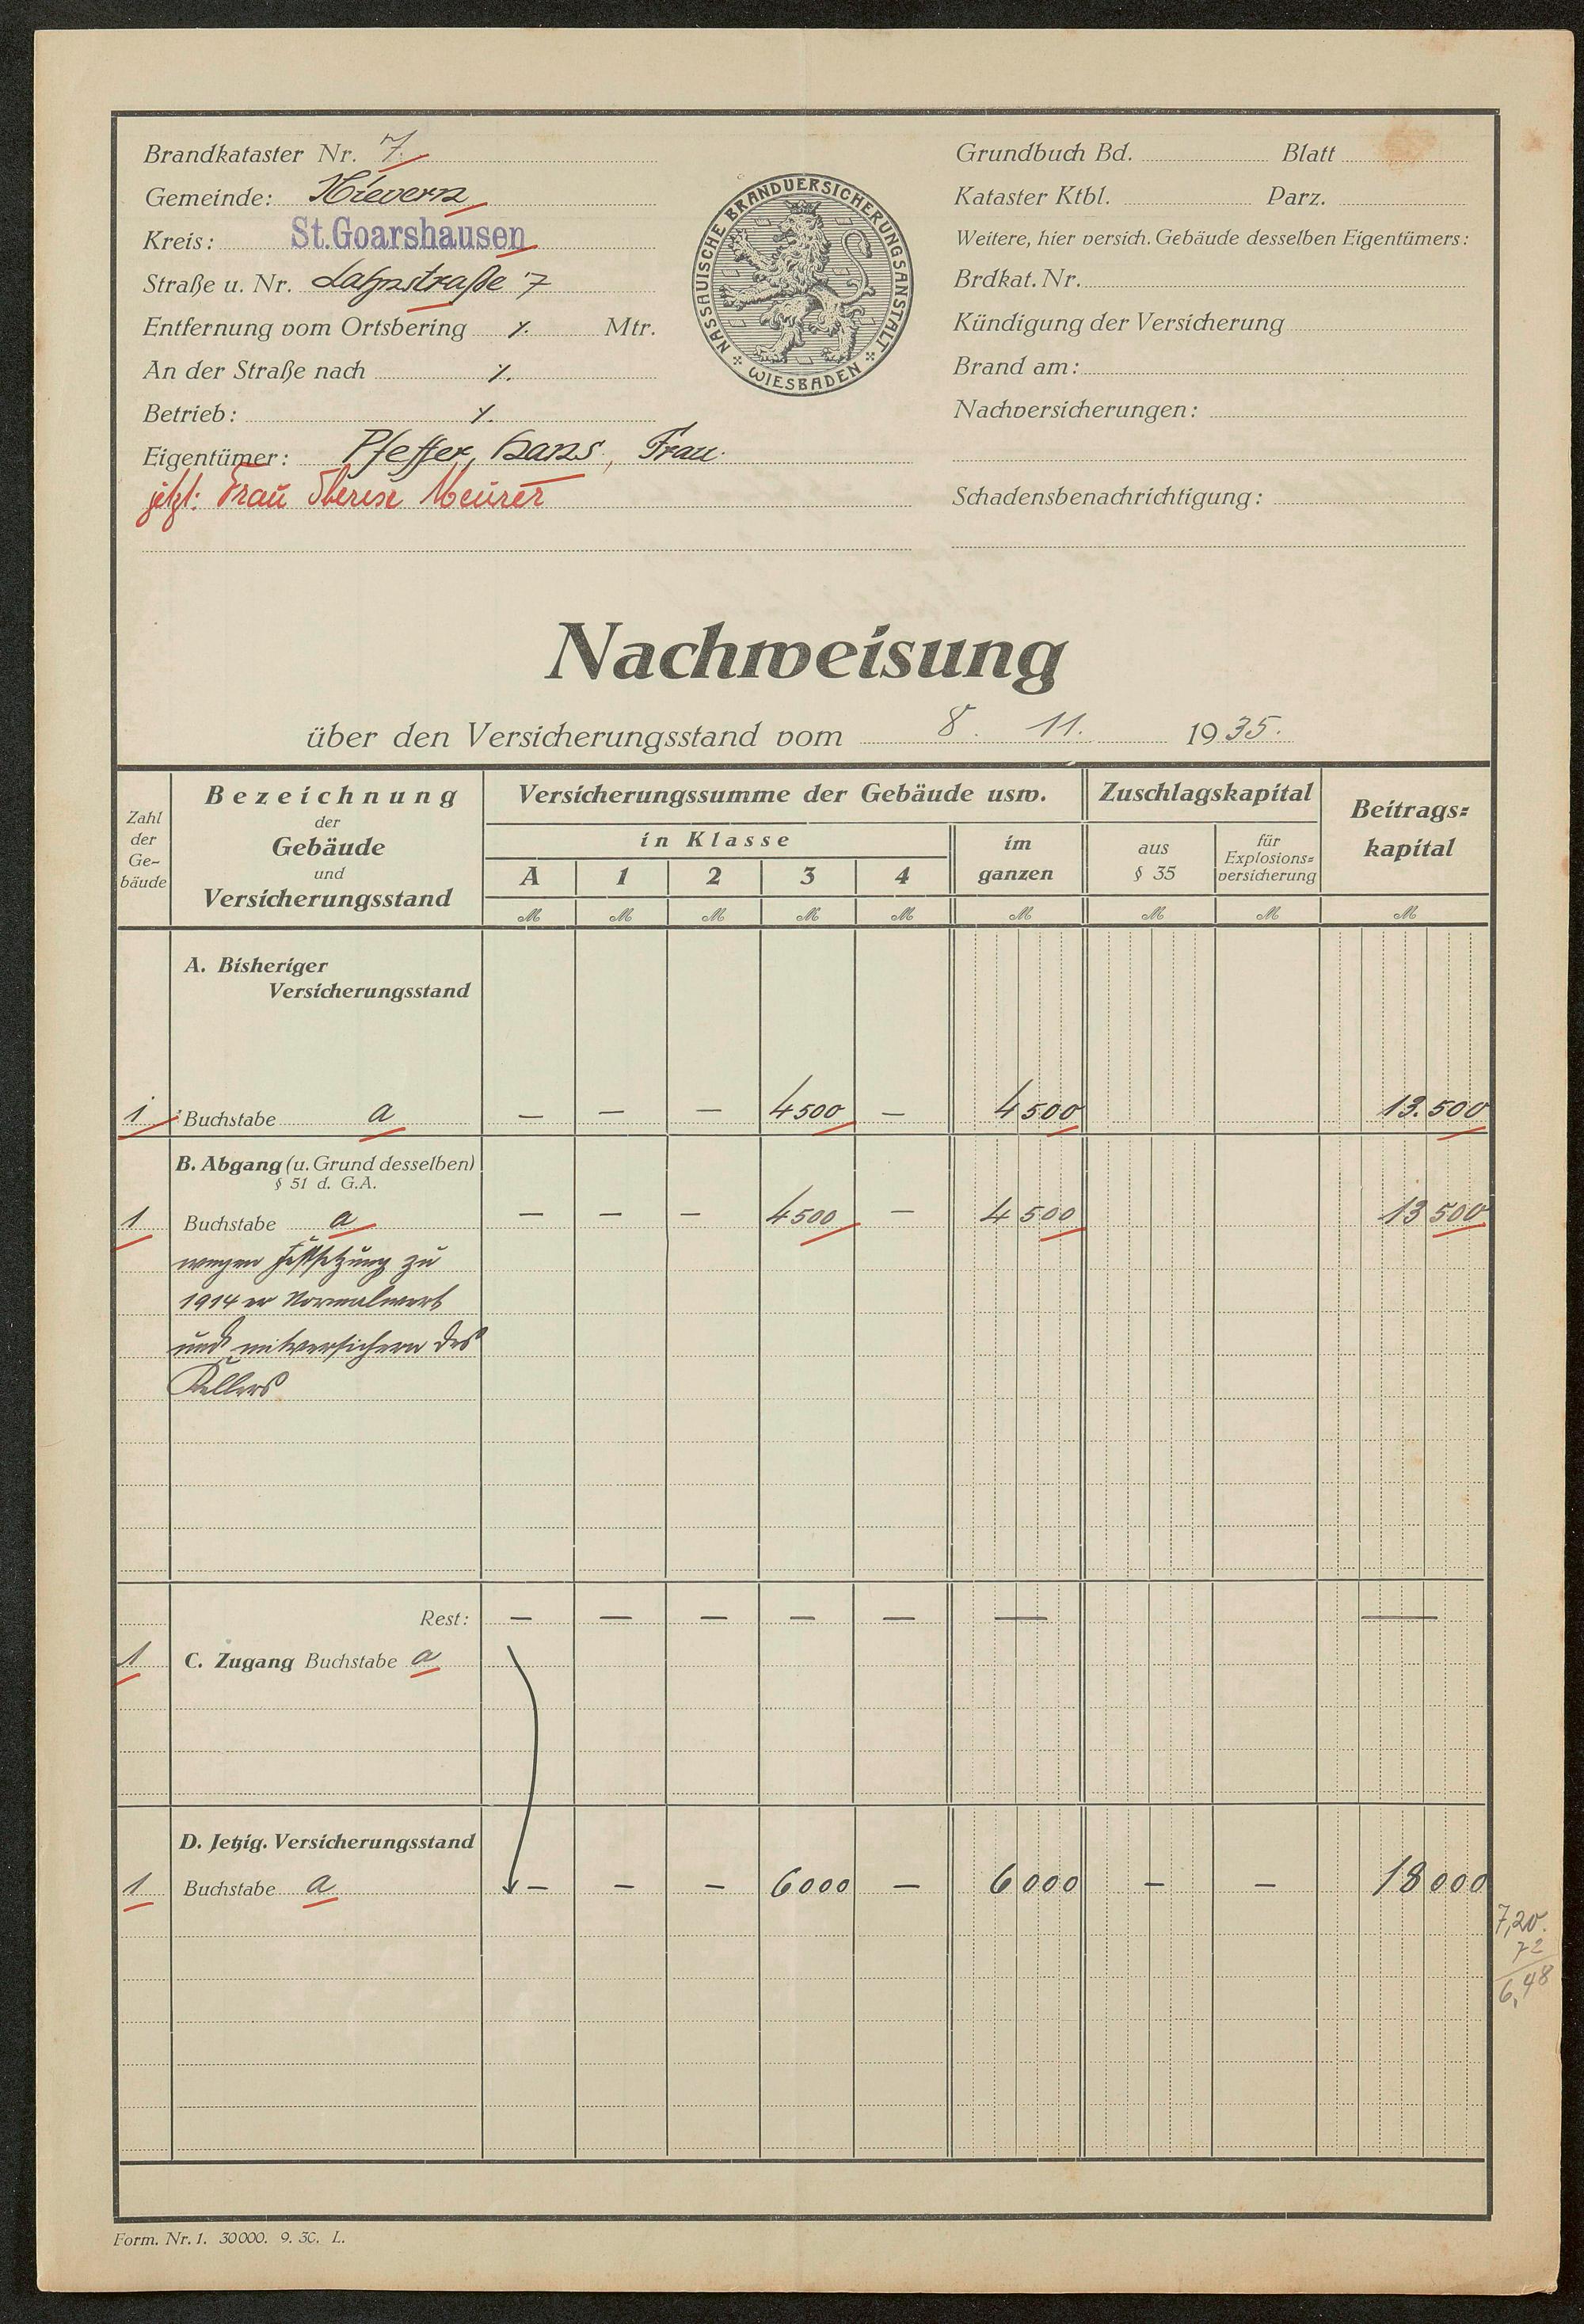 Brandkataster Nr. 7.
Gemeinde: Nievern
Kreis: St. Goarshausen
Straße u. Nr. Lahnstraße 7
Entfernung vom Ortsbering ·/. Mtr.
An der Straße nach ·/.
Betrieb: ·/.
Eigentümer: Pfeffer, Hans, Frau.
jetzt: Frau Therese Meurer
NASSAUISCHE BRANDVERSICHERUNGSANSTALT
WIESBADEN
Grundbuch Bd. Blatt
Kataster Ktbl. Parz.
Weitere, hier versich. Gebäude desselben Eigentümers:
Brdkat. Nr.
Kündigung der Versicherung
Brand am:
Nachversicherungen:
Schadensbenachrichtigung:
Nachweisung
über den Versicherungsstand vom 8. 11. 1935.
Zahl der Ge- bäude
Bezeichnung der Gebäude und Versicherungsstand
Versicherungssumme der Gebäude usw.
in Klasse
A 1 2 3 4
im ganzen
Zuschlagskapital
aus § 35
für Explosions= versicherung
Beitrags= kapital
M M M M M M M M M
A. Bisheriger
Versicherungsstand
1 Buchstabe a — — — 4500 — 4500 13.500
B. Abgang (u. Grund desselben)
§ 51 d. G.A.
1 Buchstabe a — — — 4500 — 4500 13500
wegen Festsetzung zu
1914er Normalwert
und mitversichern des
Kellers
Rest: — — — — — — —
1 C. Zugang Buchstabe a
D. Jetzig. Versicherungsstand
1 Buchstabe a — — — 6000 — 6000 — — 18000
7,20.
72
6,48
Form. Nr. 1. 30000. 9. 30. L.